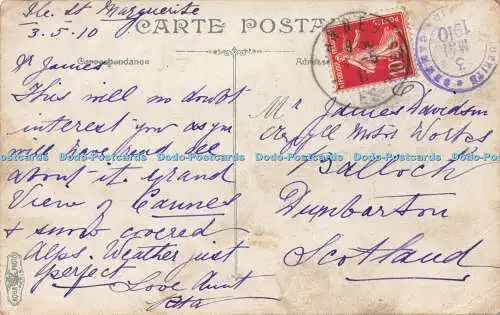 Ile St Marguerite
3.5.10
CARTE POSTALE
Correspondance
Adresse
Mr James
This will no doubt
interest you as you
will have read
about it. Grand
View of Cannes
& snow covered
Alps. Weather just
perfect
Love Aunt
Mr James Davidson
Argyll Motor Works
Balloch
Dumbarton
Scotland
10
POSTES
3
MAI
1910
Dodo-Postcards Dodo-Postcards Dodo-Postcards Dodo-Postcards Dodo-Postcards